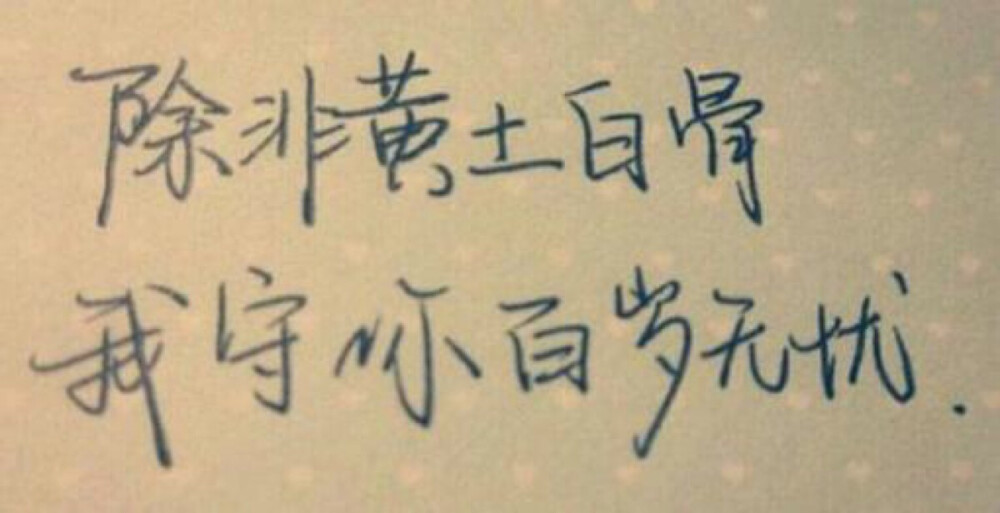 除非黄土白骨
我守你百岁无忧.